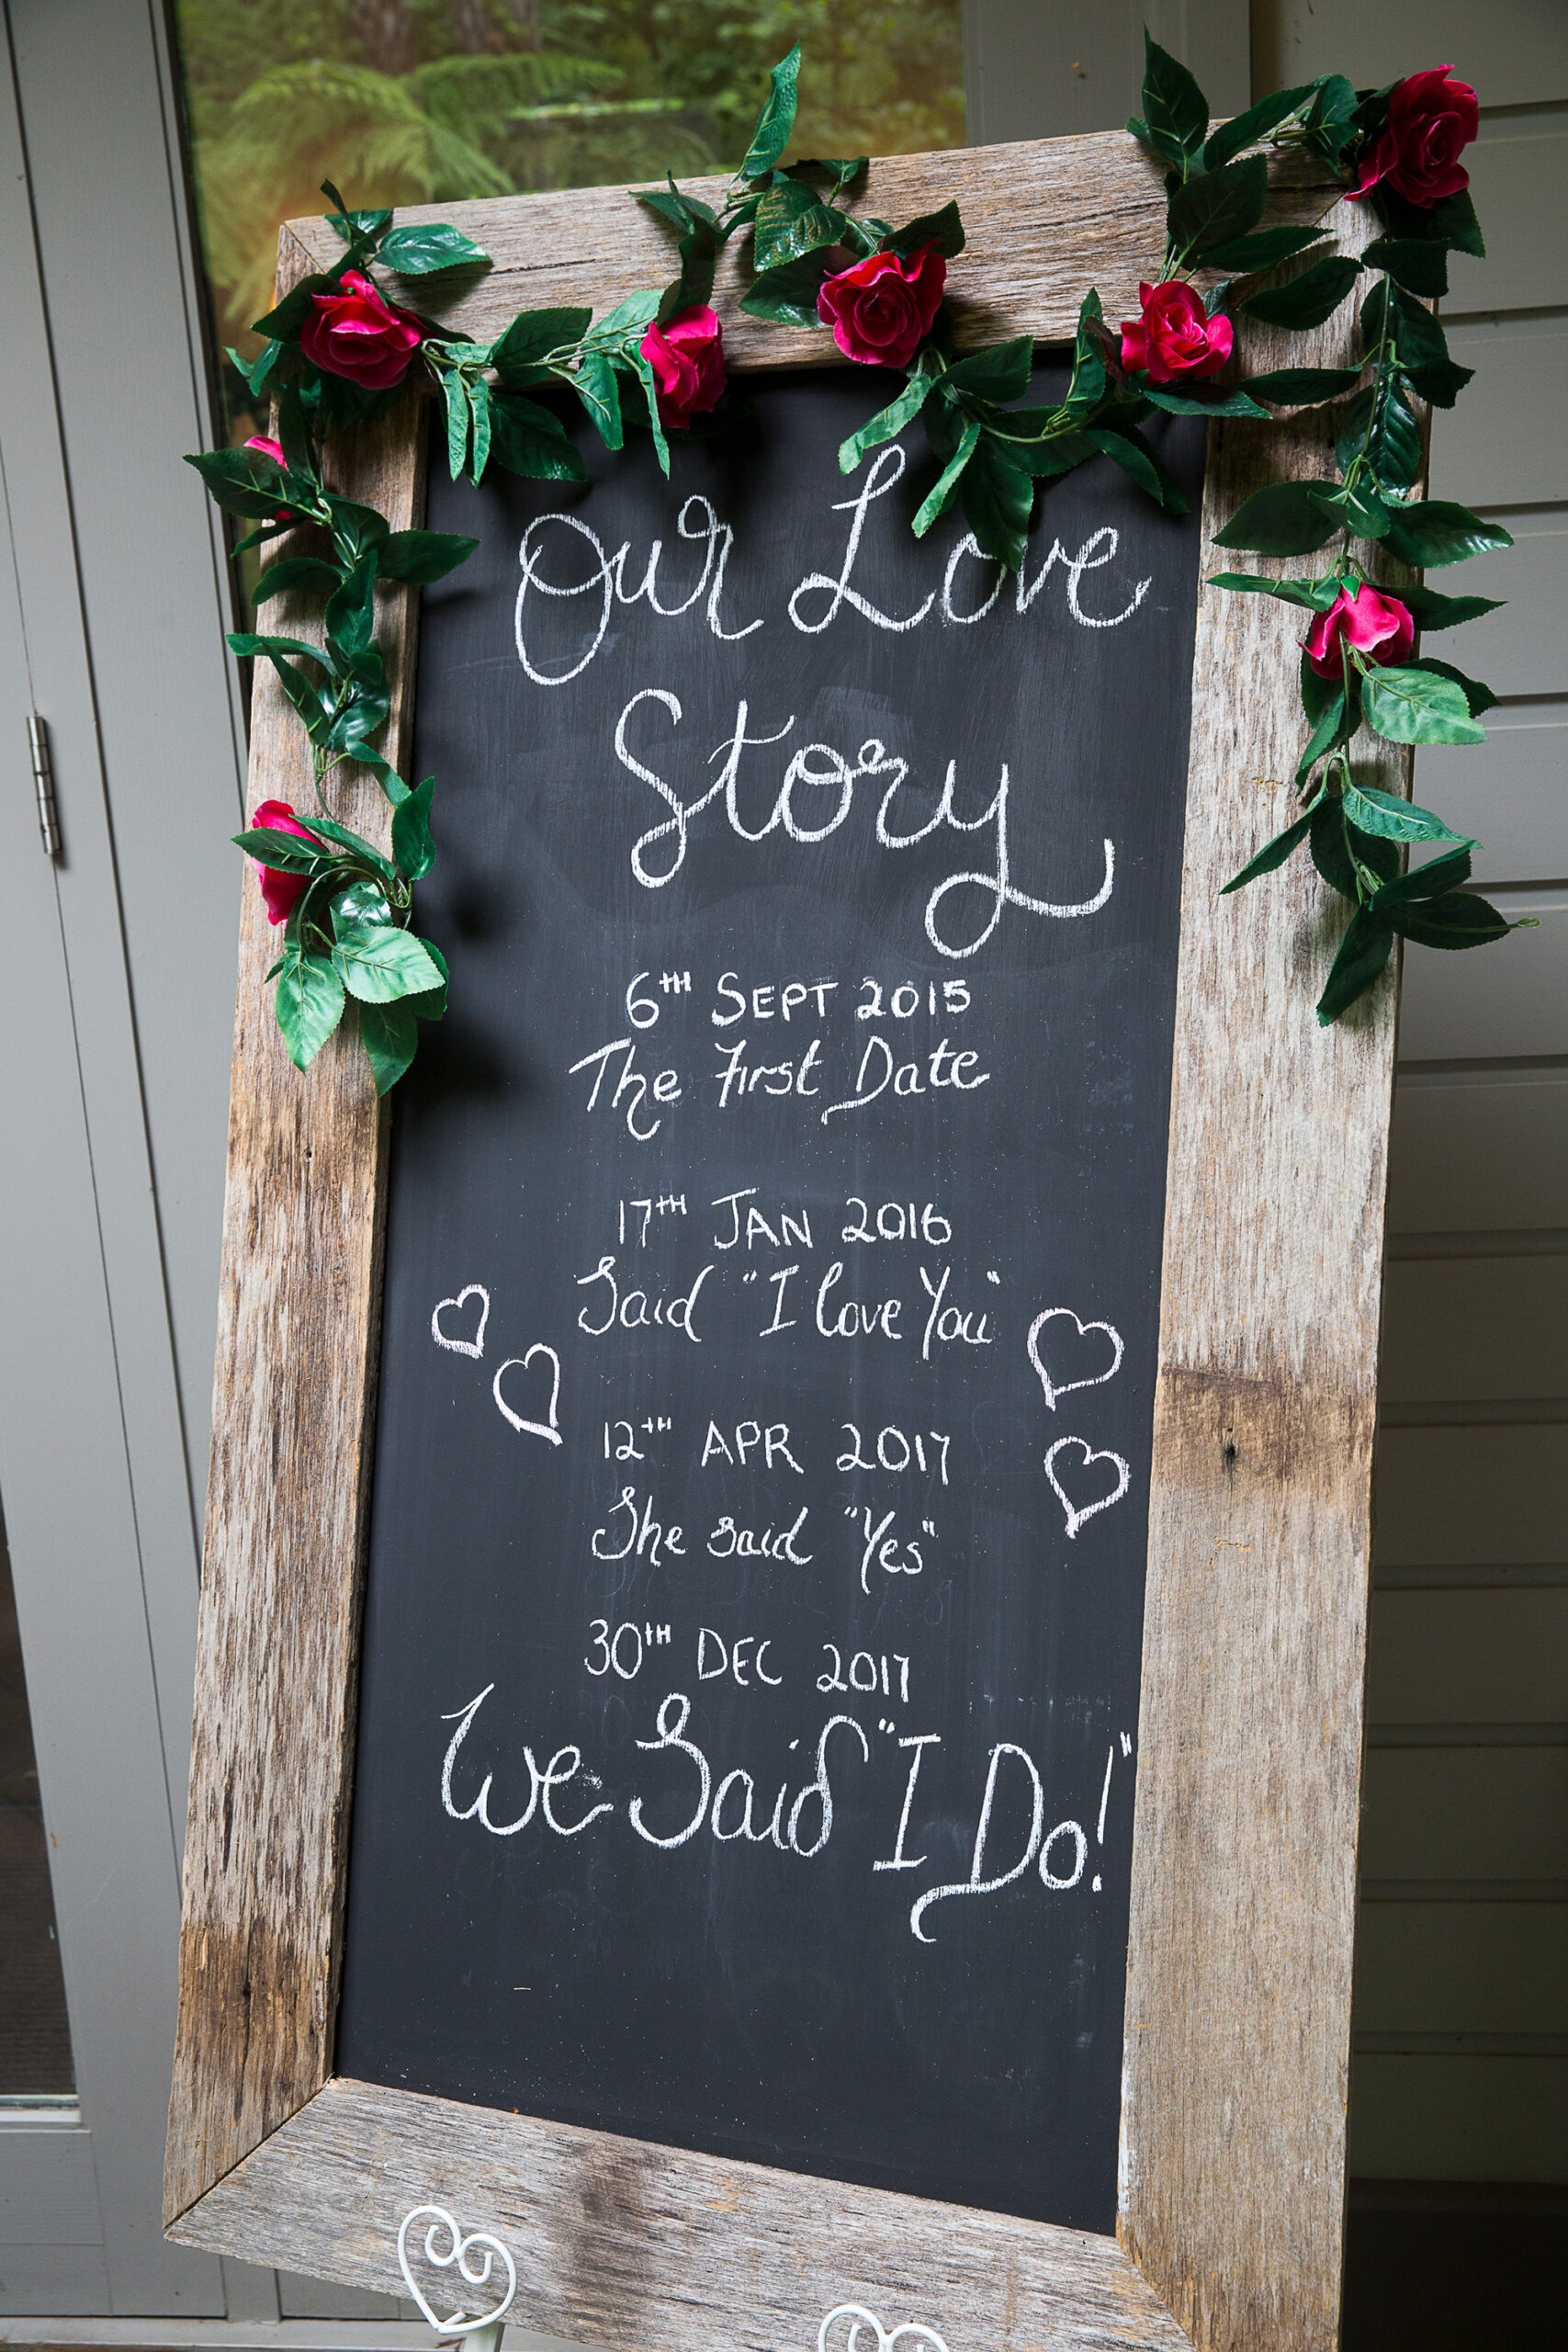 Our Love
Story
6TH SEPT 2015
The First Date
17TH JAN 2016
Said "I love You"
12TH APR 2017
She said "Yes"
30TH DEC 2017
We Said "I Do!"